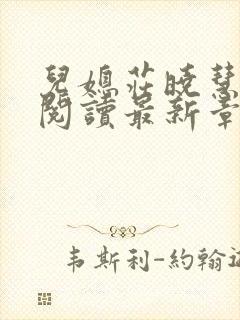 兒媳莊曉慧
閱讀最新章
韦斯利-約翰遜